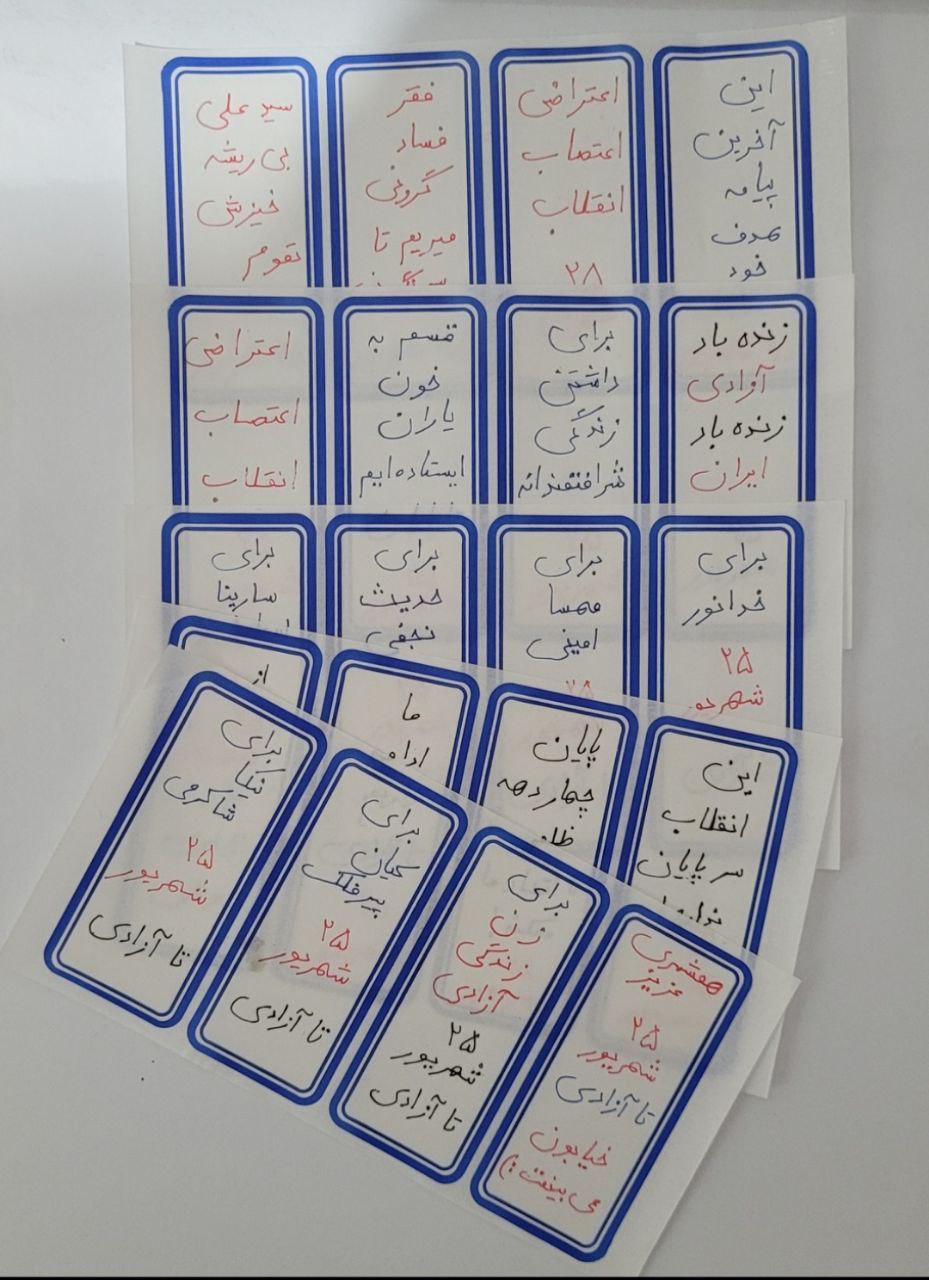 این
آخرین
پیامه
هدف
خود
اعتراض
اعتصاب
انقلاب
۲۸
فقر
فساد
گرونی
میریم تا
سید علی
بی ریشه
خیزش
تقوم
زنده باد
آزادی
زنده باد
ایران
برای
داشتن
زندگی
شرافتمندانه
قسم به
خون
یاران
ایستاده ایم
اعتراض
اعتصاب
انقلاب
برای
خدانور
۲۵
شهریور
برای
مهسا
امینی
۲۸
برای
حدیث
نجفی
برای
سارینا
این
انقلاب
سر پایان
پایان
چهار دهه
ما
از
همشهری
عزیز
۲۵
شهریور
تا آزادی
خیابون
می بینمت :)
برای
زن
زندگی
آزادی
۲۵
شهریور
تا آزادی
برای
کیان
پیرفلک
۲۵
شهریور
تا آزادی
برای
نیکا
شاکرمی
۲۵
شهریور
تا آزادی